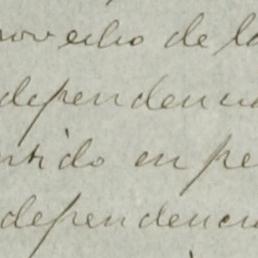 rovecho de la
dependencia
ntido en pe
dependencia